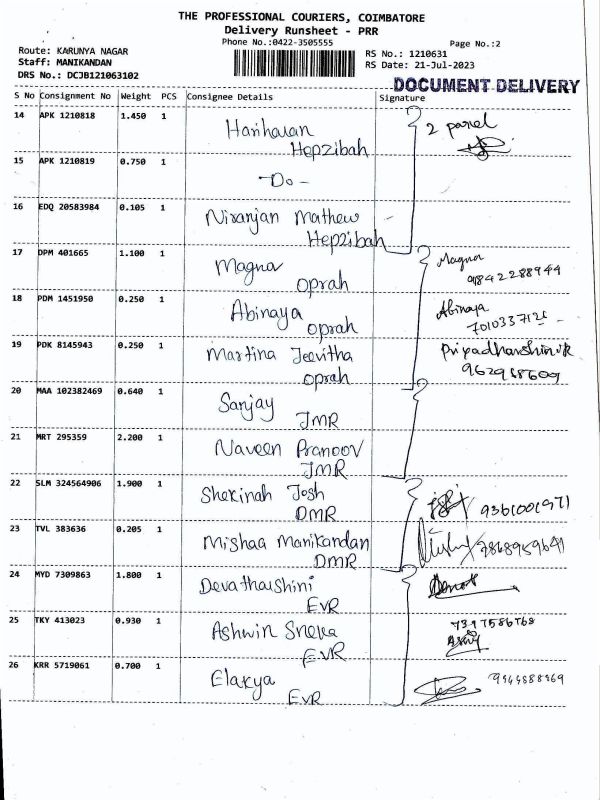 THE PROFESSIONAL COURIERS, COIMBATORE
Delivery Runsheet - PRR
Phone No.:0422-3505555
Page No.:2
Route: KARUNYA NAGAR
RS No.: 1210631
Staff: MANIKANDAN
RS Date: 21-Jul-2023
DRS No.: DCJB121063102
DOCUMENT DELIVERY
S No Consignment No Weight PCS Consignee Details Signature
14 APK 1210818 1.450 1 Hariharan 2 parcel
Hepzibah
15 APK 1210819 0.750 1
-Do-
16 EDQ 20583984 0.105 1 Niranjan Mathew
Hepzibah
17 DPM 401665 1.100 1 Magna Magna
oprah 9842288944
18 PDM 1451950 0.250 1 Abinaya Abinaya
oprah 7010337121
19 PDK 8145943 0.250 1 Martina Jeevitha Priyadharshini R
oprah 962968609
20 MAA 102382469 0.640 1 Sanjay
JMR
21 MRT 295359 2.200 1 Naveen Pranoov
JMR
22 SLM 324564906 1.900 1 Shekinah Josh 9361001971
DMR
23 TVL 383636 0.205 1 Mishaa Manikandan 7868959641
DMR
24 MYD 7309863 1.800 1 Devatharshini
EVR
25 TKY 413023 0.930 1 Ashwin Sneka 7397586768
EVR
26 KRR 5719061 0.700 1 Elakya
EVR